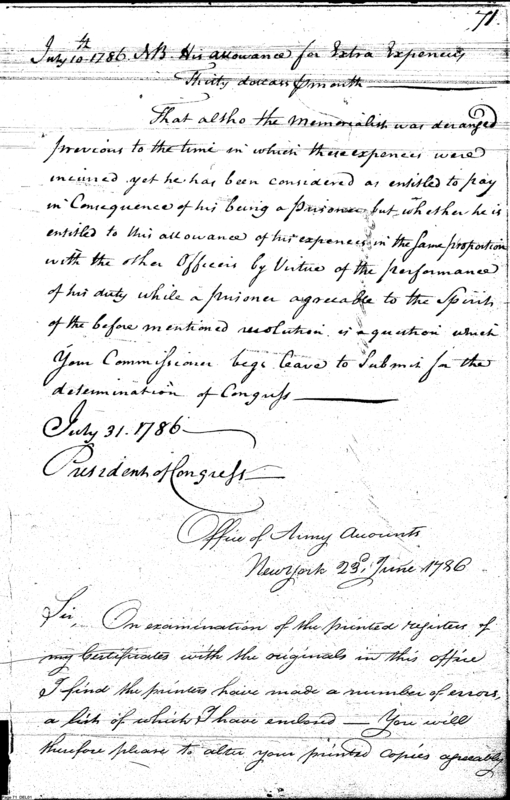 71.
July 10th 1786. NB. His allowance for Extra Expences
Thirty dollars ⅌ month
That altho the Memorialist was deranged
previous to the time in which these expences were
incurred yet he has been considered as entitled to pay
in Consequence of his being a prisoner but whether he is
entitled to this allowance of his expences in the same proportion
with the other Officers by Virtue of the performance
of his duty while a prisoner agreeable to the Spirit
of the before mentioned resolution is a question which
Your Commissioner begs leave to Submit for the
determination of Congress
July 31. 1786
President of Congress
Office of Army Accounts
New York 23d. June 1786
Sir, On examination of the printed registers of
my Certificates with the originals in this office
I find the printers have made a number of errors,
a list of which I have enclosed — You will
therefore please to alter your printed copies agreeably
Page 71